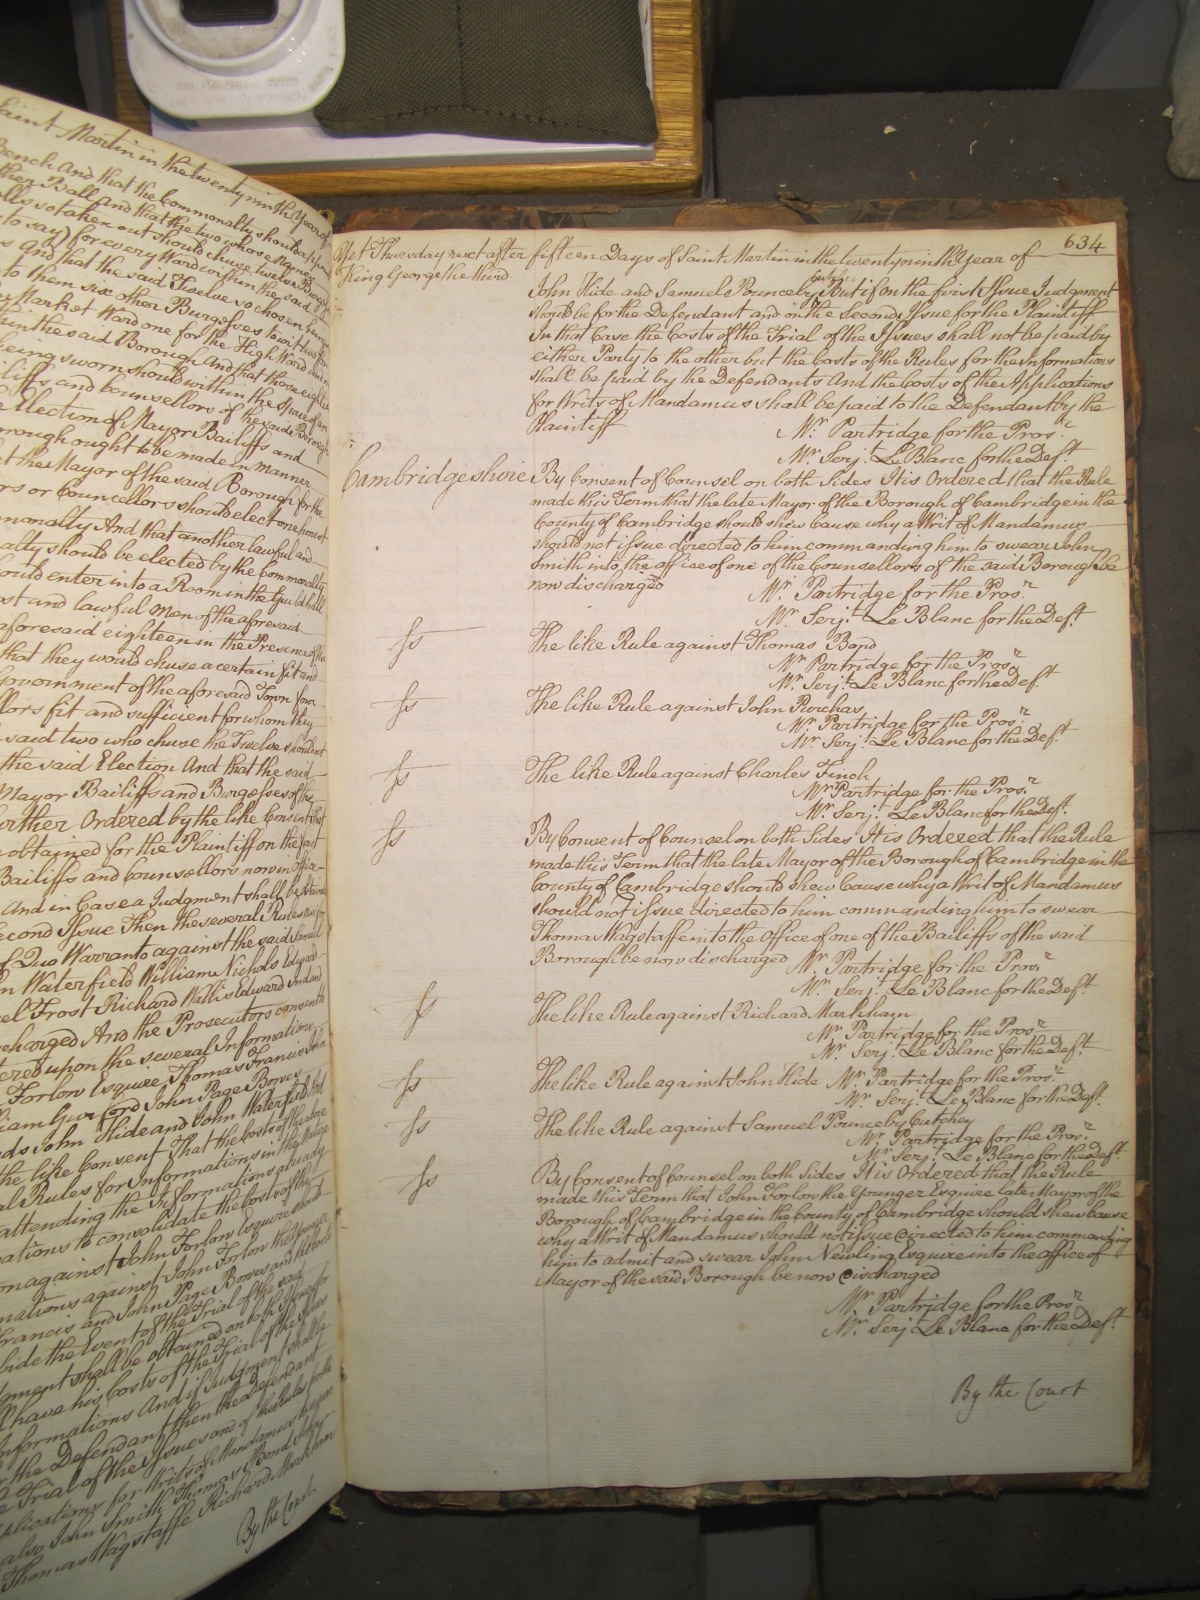 Saint Martin in the twenty ninth Year of
Bench And that the Commonalty should appear
then Ball and that the two whose Names
Balls so taken out should chuse twelve Burgesses
to say) for every Ward within the said
And that the said Twelve so chosen being
to them six other Burgesses to wit two for
Market Ward one for the High Ward and
within the said Borough And that those eighteen
being sworn should within the Space of an
Bailiffs and Counsellors of the said Borough
Election of Mayor Bailiffs and
Borough ought to be made in manner
the Mayor of the said Borough for the
or Councellors should elect one honest
Commonalty And that another lawful and
should be elected by the Commonalty
should enter into a Room in the Guildhall
and lawful Men of the aforesaid
aforesaid eighteen in the Presence of the
that they would chuse a certain fit and
Government of the aforesaid Town four
fit and sufficient for whom they
said two who chuse the Twelve should not
the said Election And that the said
Mayor Bailiffs and Burgesses of the
further Ordered by the like Consent that
obtained for the Plaintiff on the first
Bailiffs and Counsellors now in office
And in Case a Judgment shall be obtained
second Issue Then the several Rules
of Quo Warranto against the said Samuel
Waterfield William Nichols Edward
Frost Richard Wallis Edward
discharged And the Prosecutors consenth
entered upon the several Informations
Forlow Esquire Thomas Francis John
Gurford John Page Bowes
John Hide and John Waterfield
the like Consent That the Costs of the above
Rules for Informations in the Nature
attending the Informations already
to consolidate the Costs of the
against John Forlow Esquire
against John Forlow the Younger
Francis and John Page Bowes and the Costs
abide the Event of the Trial of the said
Judgment shall be obtained on both Issues for
have his Costs of the Trial of the Issues
Informations And if Judgment shall be
for the Defendant then the Defendant
Trial of the Issues and of the Rules for the
Applications for Writs of Mandamus
also John Smith Thomas Bond John
Thomas Wagstaffe Richard Markham
By the Court
634
Yet Thursday next after fifteen Days of Saint Martin in the twenty ninth Year of
King George the third
John Hide and Samuel Pounceby But if on the first Issue Judgment
should be for the Defendant and on the Second Issue for the Plaintiff
In that Case the Costs of the Trial of the Issues shall not be paid by
either Party to the other but the Costs of the Rules for the Informations
shall be paid by the Defendants And the Costs of the Applications
for Writs of Mandamus shall be paid to the Defendant by the
Plaintiff Mr. Partridge for the Prosr.
Mr. Serjt. Le Blanc for the Deft.
Cambridgeshire By Consent of Counsel on both Sides It is Ordered that the Rule
made this Term that the late Mayor of the Borough of Cambridge in the
County of Cambridge should shew Cause why a Writ of Mandamus
should not issue directed to him commanding him to swear John
Smith into the office of one of the Counsellors of the said Borough be
now discharged Mr. Partridge for the Prosr.
Mr. Serjt. Le Blanc for the Deft.
Ss The like Rule against Thomas Bond
Mr. Partridge for the Prosr.
Mr. Serjt. Le Blanc for the Deft.
Ss The like Rule against John Purchas
Mr. Partridge for the Prosr.
Mr. Serjt. Le Blanc for the Deft.
Ss The like Rule against Charles Finch
Mr. Partridge for the Prosr.
Mr. Serjt. Le Blanc for the Deft.
Ss By Consent of Counsel on both Sides It is Ordered that the Rule
made this Term that the late Mayor of the Borough of Cambridge in the
County of Cambridge should shew Cause why a Writ of Mandamus
should not issue directed to him commanding him to swear
Thomas Wagstaffe into the Office of one of the Bailiffs of the said
Borough be now discharged Mr. Partridge for the Prosr.
Mr. Serjt. Le Blanc for the Deft.
Ss The like Rule against Richard Markham
Mr. Partridge for the Prosr.
Mr. Serjt. Le Blanc for the Deft.
Ss The like Rule against John Hide Mr. Partridge for the Prosr.
Mr. Serjt. Le Blanc for the Deft.
Ss The like Rule against Samuel Pounceby Cutchey
Mr. Partridge for the Prosr.
Mr. Serjt. Le Blanc for the Deft.
Ss By Consent of Counsel on both Sides It is Ordered that the Rule
made this Term that John Forlow the Younger Esquire late Mayor of the
Borough of Cambridge in the County of Cambridge should shew Cause
why a Writ of Mandamus should not issue directed to him commanding
him to admit and swear John Newling Esquire into the office of
Mayor of the said Borough be now discharged
Mr. Partridge for the Prosr.
Mr. Serjt. Le Blanc for the Deft.
By the Court